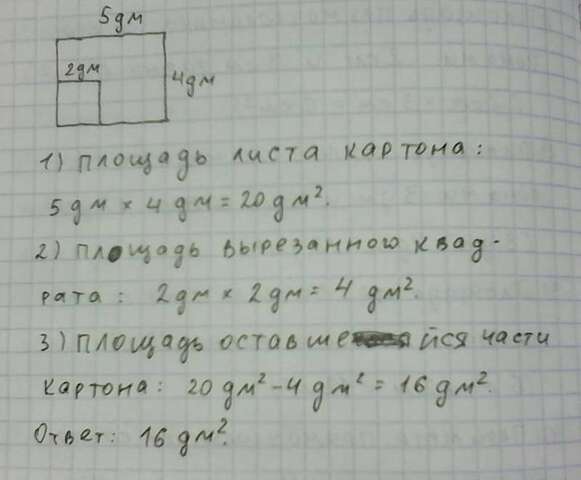 5дм
2дм
4дм
1) площадь листа картона:
5дм × 4 дм = 20 дм².
2) площадь вырезанного квад-
рата: 2дм × 2дм = 4 дм².
3) площадь оставшейся части
картона: 20 дм² - 4 дм² = 16 дм².
Ответ: 16 дм².